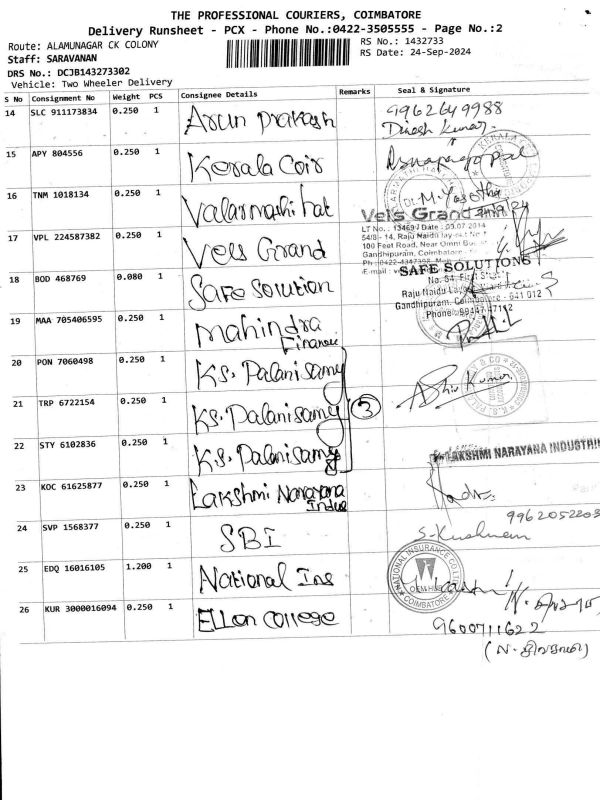 THE PROFESSIONAL COURIERS, COIMBATORE
Delivery Runsheet - PCX - Phone No.:0422-3505555 - Page No.:2
Route: ALAMUNAGAR CK COLONY RS No.: 1432733
Staff: SARAVANAN RS Date: 24-Sep-2024
DRS No.: DCJB143273302
Vehicle: Two Wheeler Delivery
S No Consignment No Weight PCS Consignee Details Remarks Seal & Signature
14 SLC 911173834 0.250 1 Arun prakash 9962649988
Dinesh Kumar.
15 APY 804556 0.250 1 Kerala Coir
16 TNM 1018134 0.250 1 Valarmathi hat
Vels Grand
17 VPL 224587382 0.250 1 Vels Grand
LT No.: 13469 / Date : 03.07.2014
54/8- 14, Raju Naidu layout
100 Feet Road, Near Omni Bus
Gandhipuram, Coimbatore
18 BOD 468769 0.080 1 Safe solution SAFE SOLUTIONS
Raju Naidu
Gandhipuram, Coimbatore - 641 012
Phone: 99447 47112
19 MAA 705406595 0.250 1 mahindra
Finance
20 PON 7060498 0.250 1 K.S. Palanisamy
21 TRP 6722154 0.250 1 K.S. Palanisamy 3 Shiv Kumar
22 STY 6102836 0.250 1 K.S. Palanisamy
LAKSHMI NARAYANA INDUSTRIES
23 KOC 61625877 0.250 1 Lakshmi Narayana
Indus
9962052203
24 SVP 1568377 0.250 1 SBI
25 EDQ 16016105 1.200 1 National Ins NATIONAL INSURANCE CO LTD
COIMBATORE
26 KUR 3000016094 0.250 1 Ellen College
9600711622